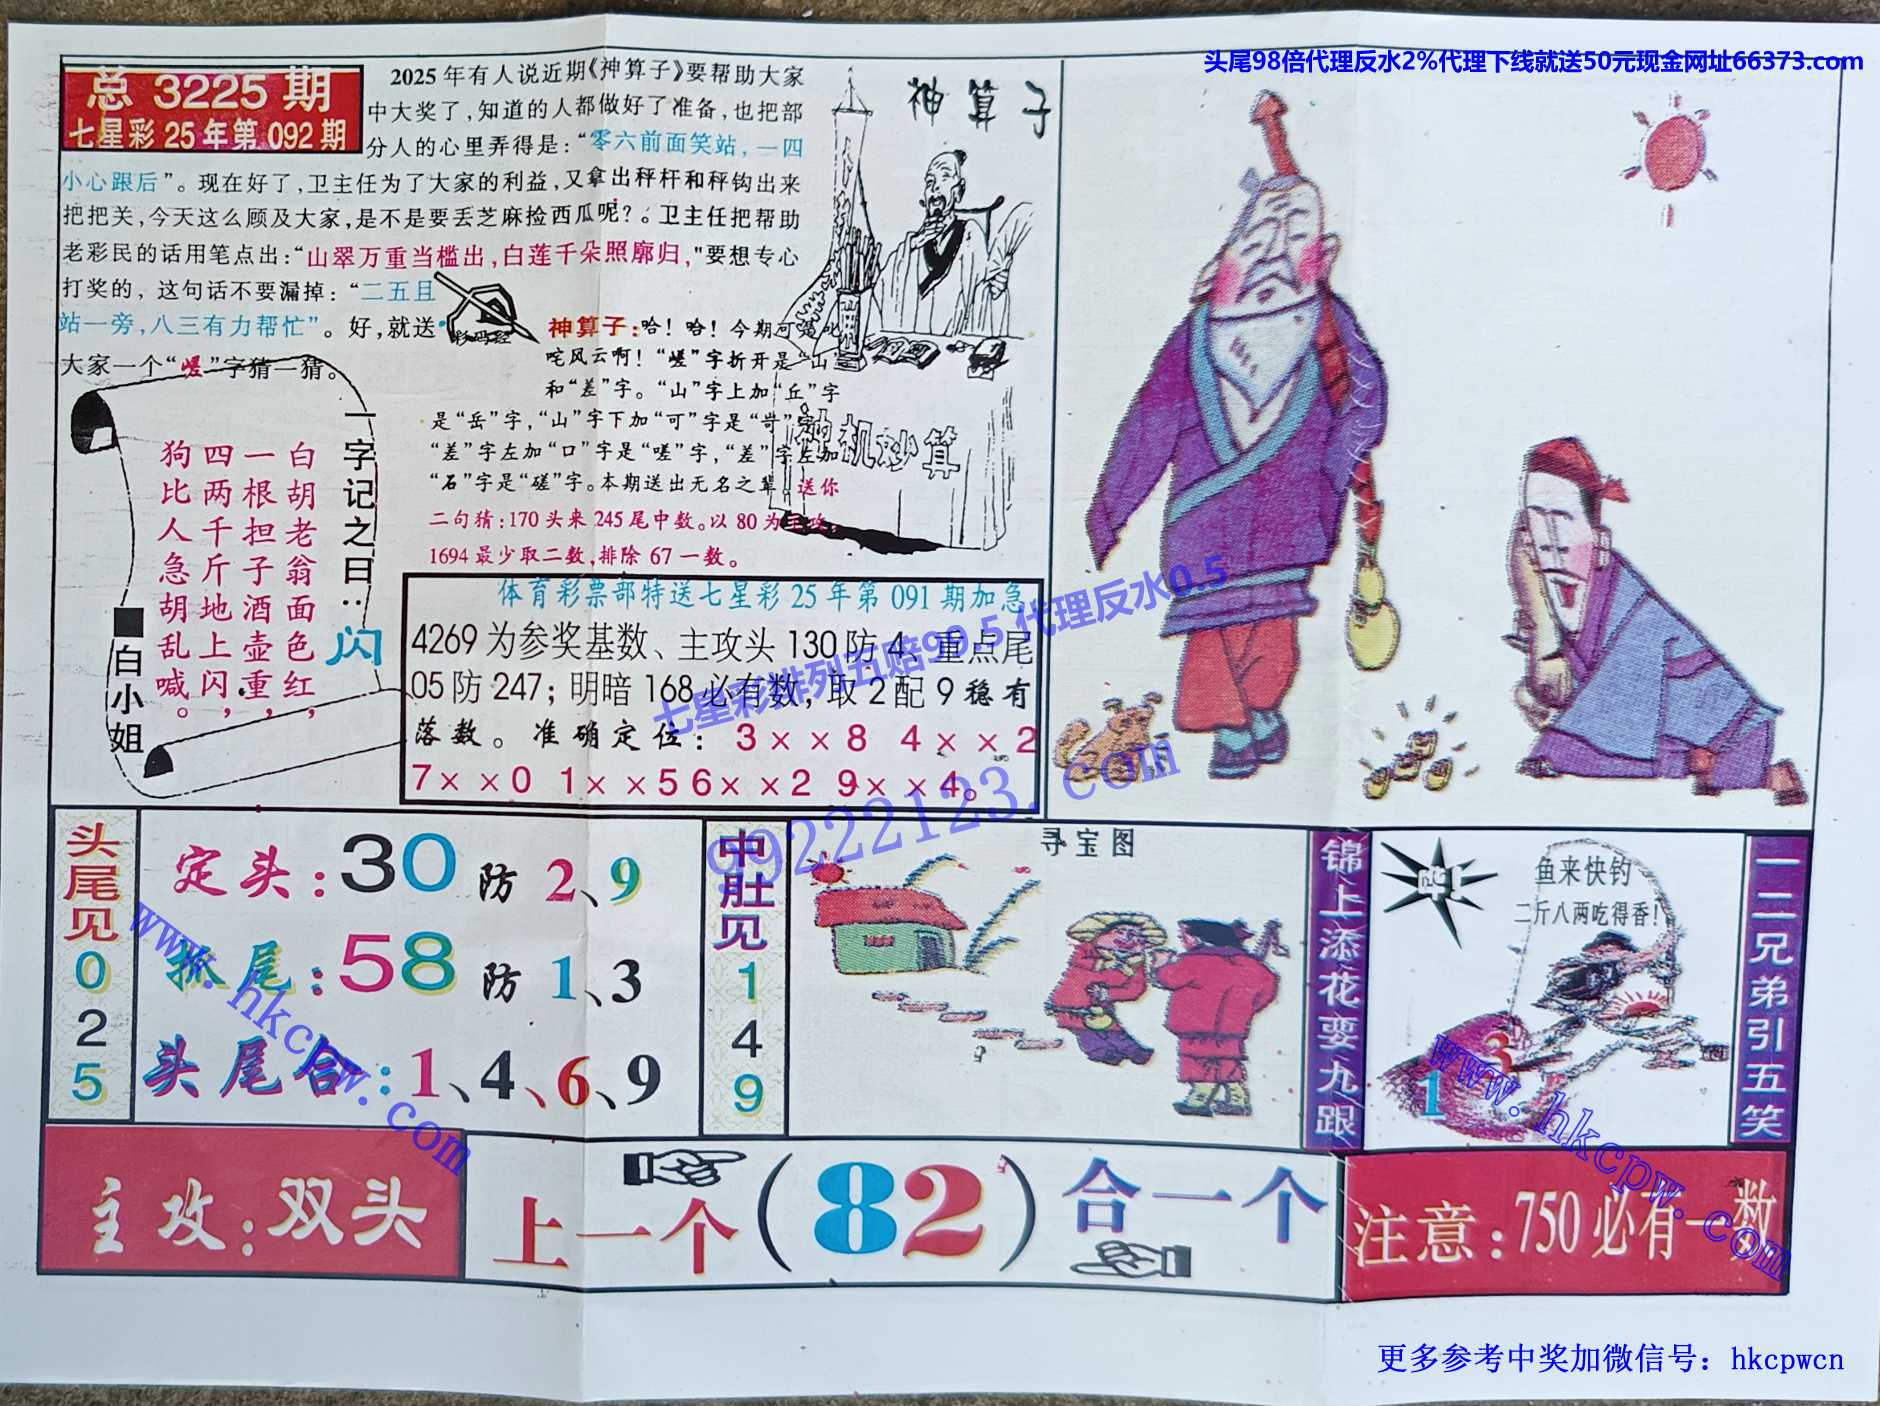 头尾98倍代理反水2%代理下线就送50元现金网址66373.com
总 3225 期
七星彩 25 年第 092 期
2025 年有人说近期《神算子》要帮助大家
中大奖了，知道的人都做好了准备，也把部
分人的心里弄得是：“零六前面笑站，一四
小心跟后”。现在好了，卫主任为了大家的利益，又拿出秤杆和秤钩出来
把把关，今天这么顾及大家，是不是要丢芝麻捡西瓜呢？。卫主任把帮助
老彩民的话用笔点出：“山翠万重当槛出，白莲千朵照廓归，"要想专心
打奖的，这句话不要漏掉：“二五且
站一旁，八三有力帮忙”。好，就送
大家一个“嵯”字猜一猜。
神算子
神机妙算
神算子：哈！哈！今期可是叱
咤风云啊！“嵯”字折开是“山”
和“差”字。“山”字上加“丘”字
是“岳”字，“山”字下加“可”字是“岢”字
“差”字左加“口”字是“嗟”字，“差”字左加
“石”字是“磋”字。本期送出无名之辈。送你
二句猜：170 头来 245 尾中数。以 80 为主攻。
1694 最少取二数，排除 67 一数。
一字记之曰：闪
白胡老翁面色红，
一根担子酒壶重，
四两千斤地上闪，
狗比人急胡乱喊。
■白小姐
体育彩票部特送七星彩 25 年第 091 期加急
4269 为参奖基数、主攻头 130 防 4、重点尾
05 防 247；明暗 168 必有数，取 2 配 9 稳有
落数。准确定位：3××8 4××2
7××0 1××5 6××2 9××4。
七星彩排列五赔99.5 代理反水0.5
99222123.com
头尾见 0 2 5
定头：30 防 2、9
抓尾：58 防 1、3
头尾合：1、4、6、9
中肚见 1 4 9
寻宝图
锦上添花要九跟
鱼来快钓
二斤八两吃得香！
3
1
一二兄弟引五笑
www.hkcpw.com
www.hkcpw.com
主攻：双头
上一个（82）合一个
注意：750 必有一数
更多参考中奖加微信号：hkcpwcn